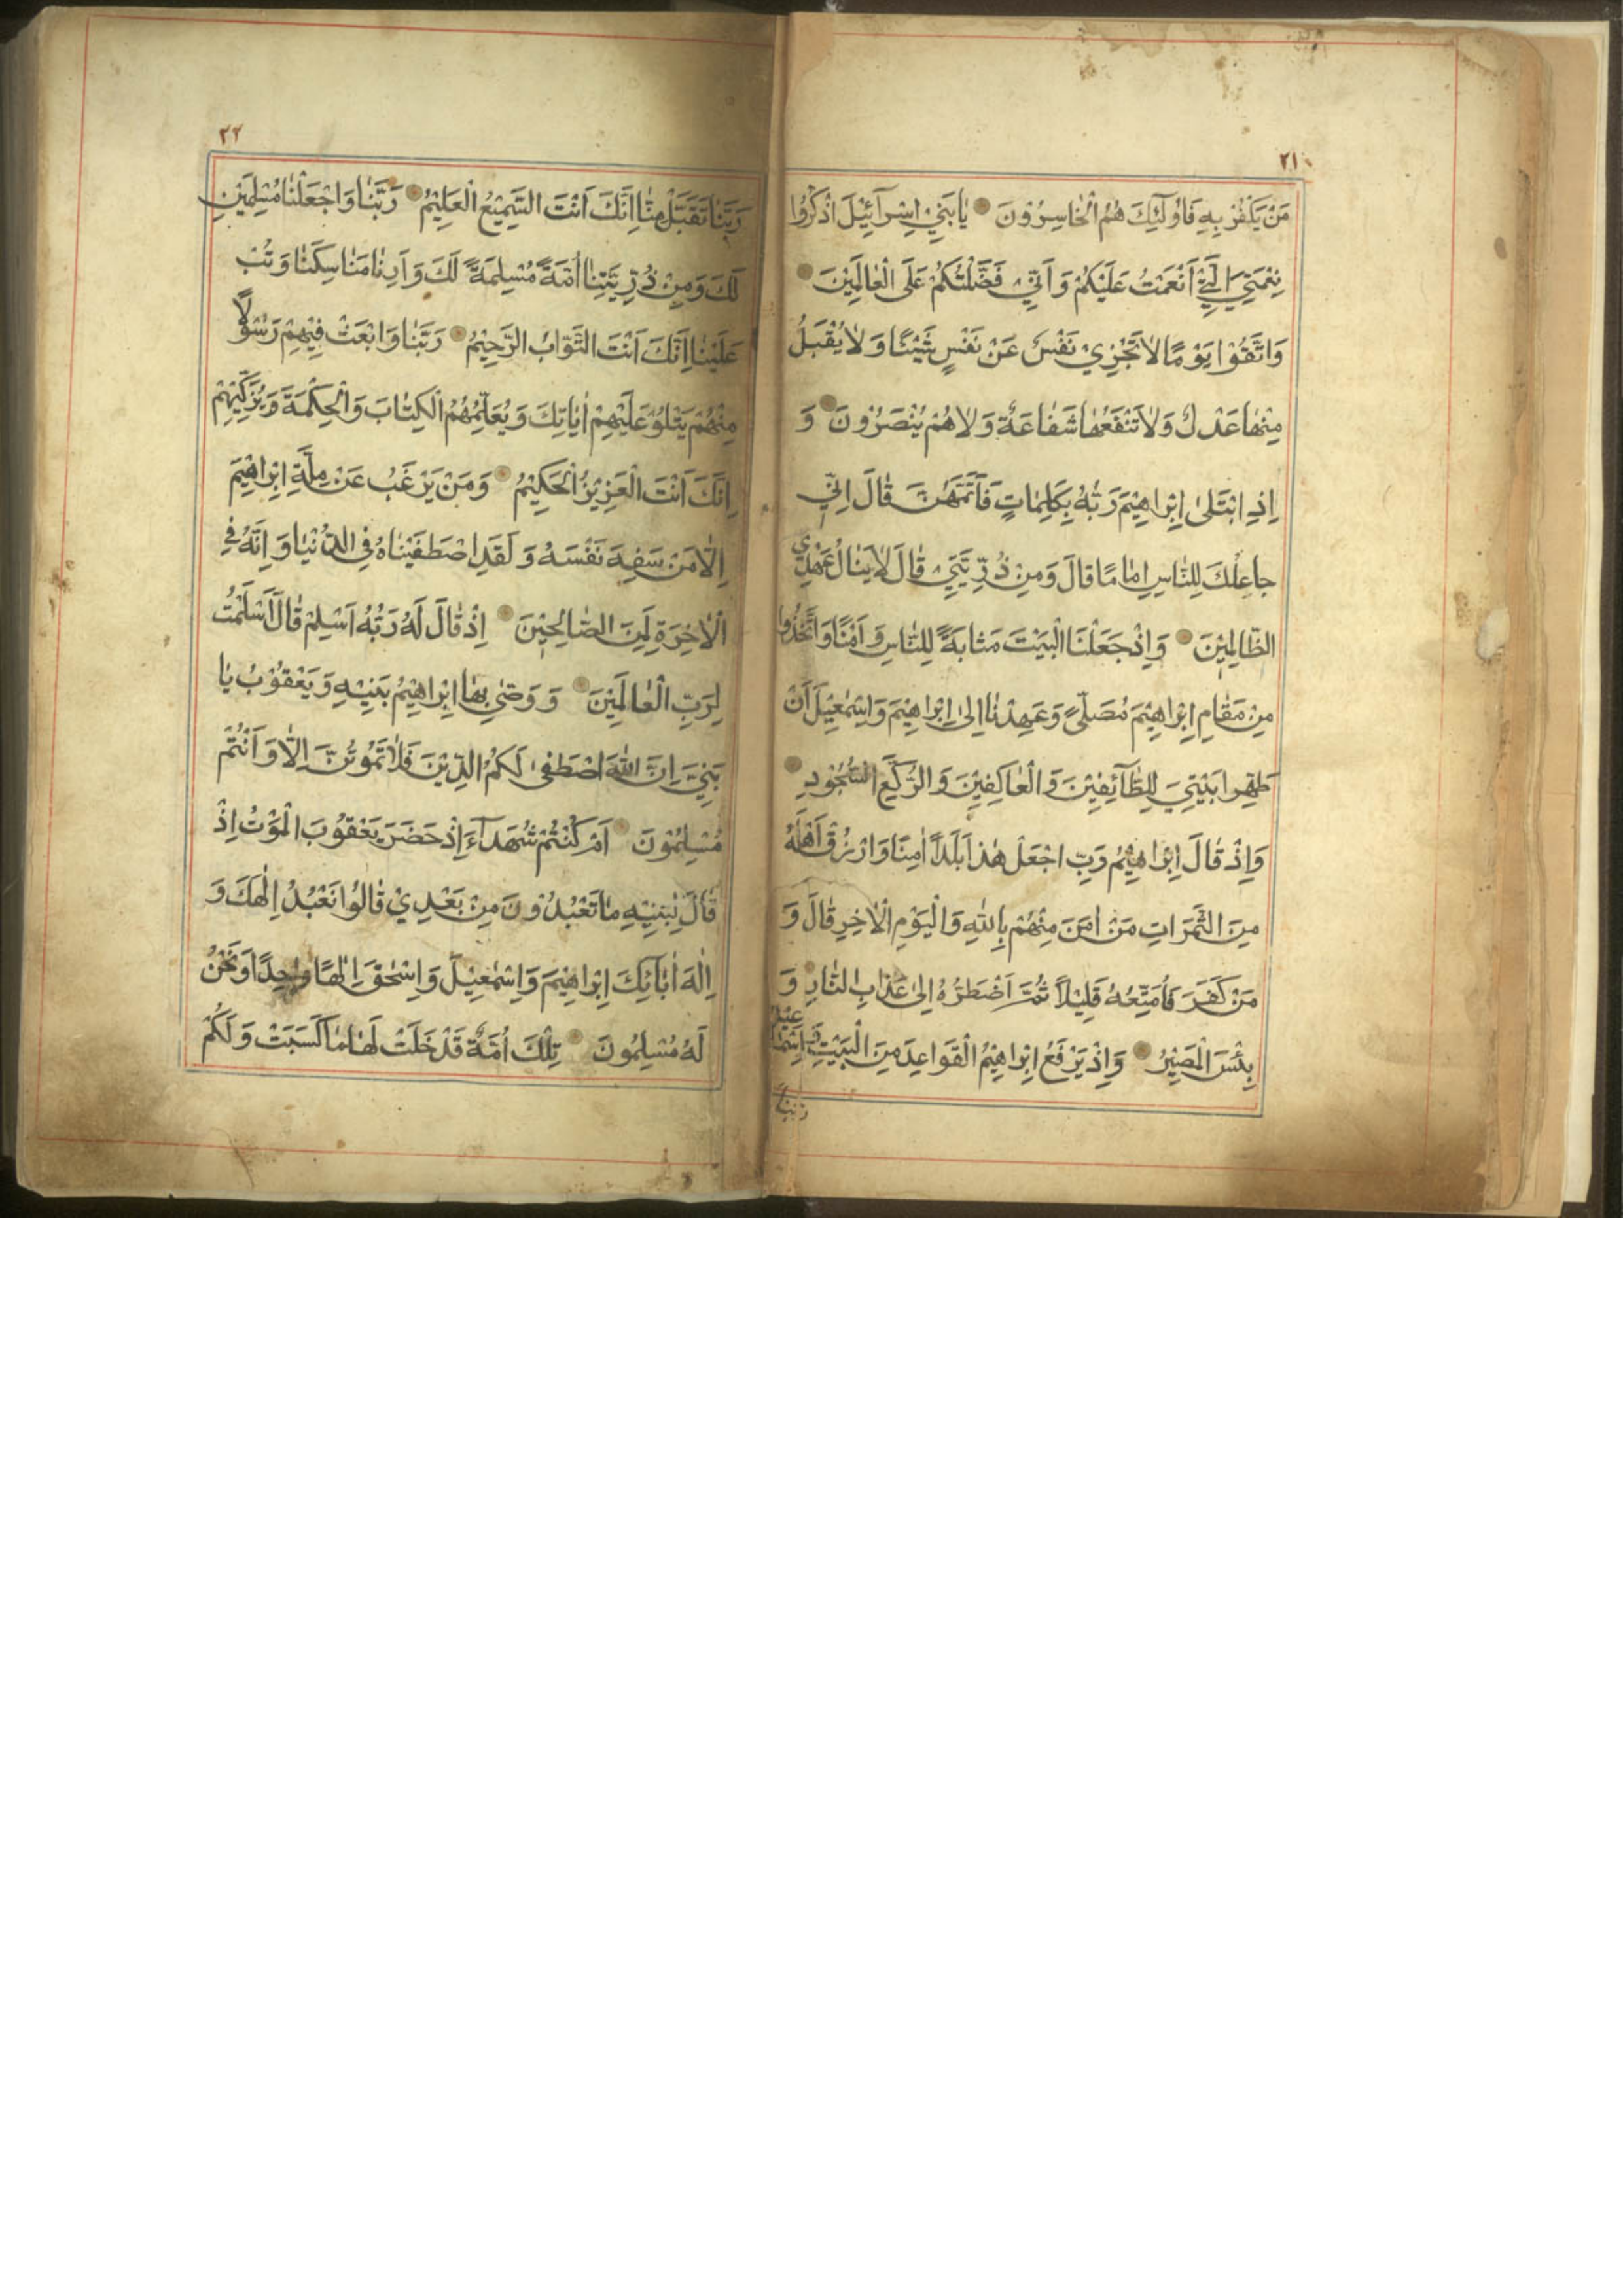 ٢١
مَنْ يَكْفُرْ بِهِ فَاُولٰٓئِكَ هُمُ الْخَاسِرُوْنَ يَا بَنِيْ اِسْرَآئِيْلَ اذْكُرُوا
نِعْمَتِيَ الَّتِيْٓ اَنْعَمْتُ عَلَيْكُمْ وَاَنِّيْ فَضَّلْتُكُمْ عَلَى الْعَالَمِيْنَ
وَاتَّقُوْا يَوْمًا لَا تَجْزِيْ نَفْسٌ عَنْ نَفْسٍ شَيْئًا وَلَا يُقْبَلُ
مِنْهَا عَدْلٌ وَلَا تَنْفَعُهَا شَفَاعَةٌ وَلَا هُمْ يُنْصَرُوْنَ وَ
اِذِ ابْتَلٰى اِبْرَاهِيْمَ رَبُّهُ بِكَلِمَاتٍ فَاَتَمَّهُنَّ قَالَ اِنِّيْ
جَاعِلُكَ لِلنَّاسِ اِمَامًا قَالَ وَمِنْ ذُرِّيَّتِيْ قَالَ لَا يَنَالُ عَهْدِي
الظَّالِمِيْنَ وَاِذْ جَعَلْنَا الْبَيْتَ مَثَابَةً لِلنَّاسِ وَاَمْنًا وَاتَّخَذُوا
مِنْ مَقَامِ اِبْرَاهِيْمَ مُصَلًّى وَعَهِدْنَا اِلٰى اِبْرَاهِيْمَ وَاِسْمٰعِيْلَ اَنْ
طَهِّرَا بَيْتِيَ لِلطَّآئِفِيْنَ وَالْعَاكِفِيْنَ وَالرُّكَّعِ السُّجُوْدِ
وَاِذْ قَالَ اِبْرَاهِيْمُ رَبِّ اجْعَلْ هٰذَا بَلَدًا اٰمِنًا وَارْزُقْ اَهْلَهُ
مِنَ الثَّمَرَاتِ مَنْ اٰمَنَ مِنْهُمْ بِاللّٰهِ وَالْيَوْمِ الْاٰخِرِ قَالَ وَ
مَنْ كَفَرَ فَاُمَتِّعُهُ قَلِيْلًا ثُمَّ اَضْطَرُّهُ اِلٰى عَذَابِ النَّارِ وَ
بِئْسَ الْمَصِيْرُ وَاِذْ يَرْفَعُ اِبْرَاهِيْمُ الْقَوَاعِدَ مِنَ الْبَيْتِ وَاِسْمٰعِيْلُ
رَبَّنَا
٢٢
رَبَّنَا تَقَبَّلْ مِنَّا اِنَّكَ اَنْتَ السَّمِيْعُ الْعَلِيْمُ رَبَّنَا وَاجْعَلْنَا مُسْلِمَيْنِ
لَكَ وَمِنْ ذُرِّيَّتِنَا اُمَّةً مُسْلِمَةً لَكَ وَاَرِنَا مَنَاسِكَنَا وَتُبْ
عَلَيْنَا اِنَّكَ اَنْتَ التَّوَّابُ الرَّحِيْمُ رَبَّنَا وَابْعَثْ فِيْهِمْ رَسُوْلًا
مِنْهُمْ يَتْلُوْ عَلَيْهِمْ اٰيَاتِكَ وَيُعَلِّمُهُمُ الْكِتَابَ وَالْحِكْمَةَ وَيُزَكِّيْهِمْ
اِنَّكَ اَنْتَ الْعَزِيْزُ الْحَكِيْمُ وَمَنْ يَرْغَبُ عَنْ مِلَّةِ اِبْرَاهِيْمَ
اِلَّا مَنْ سَفِهَ نَفْسَهُ وَلَقَدِ اصْطَفَيْنَاهُ فِي الدُّنْيَا وَاِنَّهُ فِي
الْاٰخِرَةِ لَمِنَ الصَّالِحِيْنَ اِذْ قَالَ لَهُ رَبُّهُ اَسْلِمْ قَالَ اَسْلَمْتُ
لِرَبِّ الْعَالَمِيْنَ وَوَصّٰى بِهَا اِبْرَاهِيْمُ بَنِيْهِ وَيَعْقُوْبُ يَا
بَنِيَّ اِنَّ اللّٰهَ اصْطَفٰى لَكُمُ الدِّيْنَ فَلَا تَمُوْتُنَّ اِلَّا وَاَنْتُمْ
مُسْلِمُوْنَ اَمْ كُنْتُمْ شُهَدَآءَ اِذْ حَضَرَ يَعْقُوْبَ الْمَوْتُ اِذْ
قَالَ لِبَنِيْهِ مَا تَعْبُدُوْنَ مِنْ بَعْدِيْ قَالُوْا نَعْبُدُ اِلٰهَكَ وَ
اِلٰهَ اٰبَآئِكَ اِبْرَاهِيْمَ وَاِسْمٰعِيْلَ وَاِسْحٰقَ اِلٰهًا وَاحِدًا وَنَحْنُ
لَهُ مُسْلِمُوْنَ تِلْكَ اُمَّةٌ قَدْ خَلَتْ لَهَا مَا كَسَبَتْ وَلَكُمْ